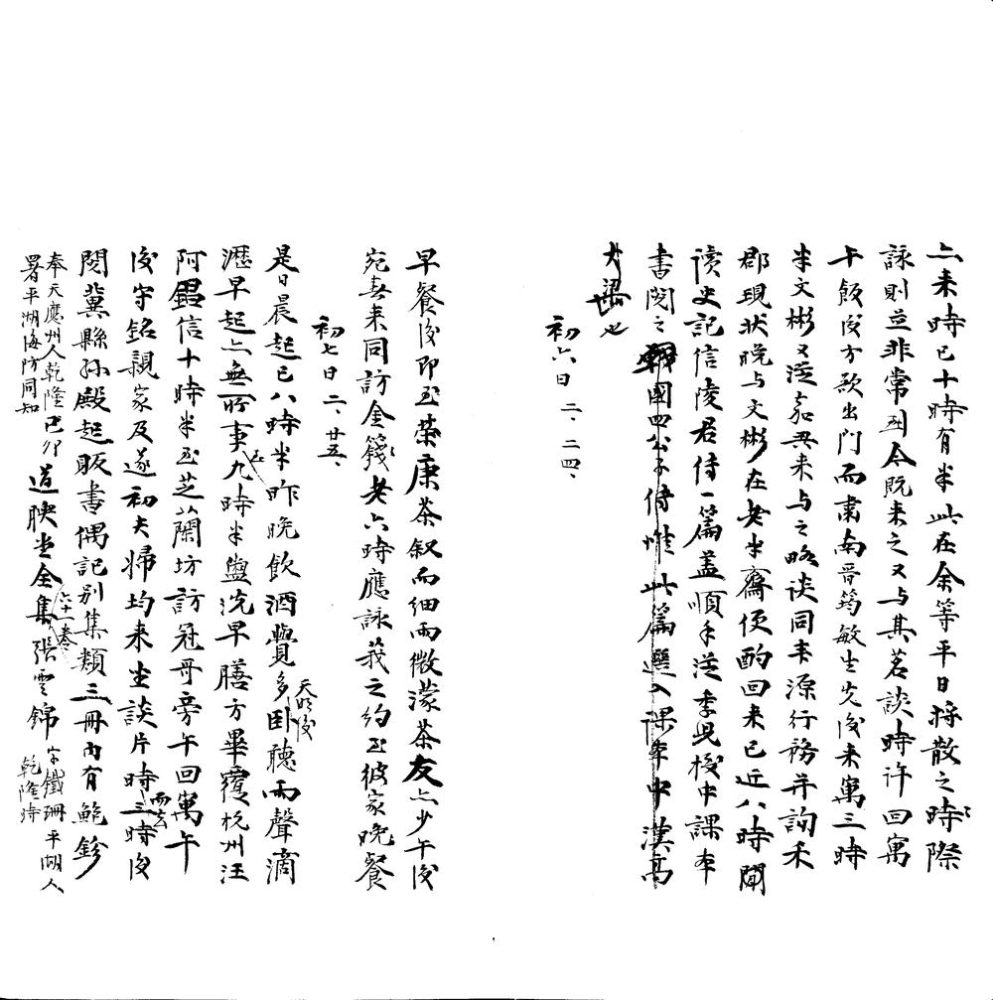 亠来時已十時有半此在余等平日将散之時際
詠則並非常到今既来之又与其茗談時许回寓
午飯後方欲出門而肃南晋筠敏生先後来寓三時
半文彬又送嘉興来与之略谈同丰源行務并詢禾
郡現状晚与文彬在老半齋便酌回来已近八時閒
讀史記信陵君传一篇盖順手送季兒梭中課本
書閲之戰國四公子传惟此篇選入课本中漢高
大梁也
初六日 二、二四、
早餐後即至荣康茶叙而细雨微濛茶友亠少午後
宛春来同訪金籛老六時應詠莪之约至彼家晚餐
初七日 二、廿五、
是日晨起已八時半昨晚飲酒覺多天明後卧聽雨聲滴
瀝早起亠無所事九時半盥洗早膳方畢 杭州汪
阿鍚信十時半至芝蘭坊訪冠哥旁午回寓午
後守銘親家及遂初夫婦均来坐談片時而去三時後
閲冀縣孙殿起販書偶記别集類三冊内有鮑鉁
奉天應州人乾隆己卯
署平湖海防同知
道腴堂全集六十一卷張雲錦
字鐵珊平湖人
乾隆時